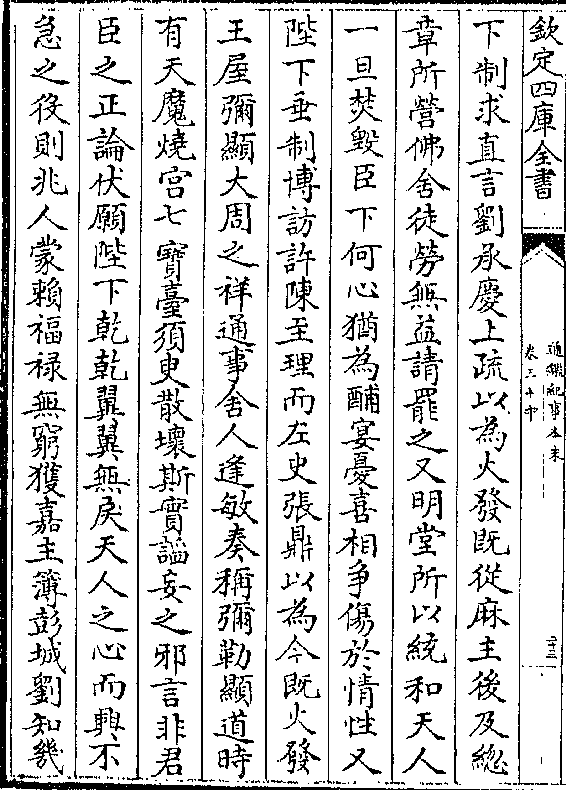 欽定四庫全書
通鑑紀事本末
卷三十中
二十三
下制求直言劉承慶上疏以為火發既從麻主後及緫
章所營佛舍徒勞無益請罷之又明堂所以統和天人
一旦焚毀臣下何心猶為酺宴憂喜相争傷於情性又
陛下垂制博訪許陳至理而左史張鼎以為今既火發
王屋彌顯大周之祥通事舍人逄敏奏稱彌勒顯道時
有天魔燒宫七寶臺須臾散壞斯實謟妄之邪言非君
臣之正論伏願陛下乾乾翼翼無戾天人之心而興不
急之役則兆人蒙賴福禄無窮獲嘉主簿彭城劉知幾